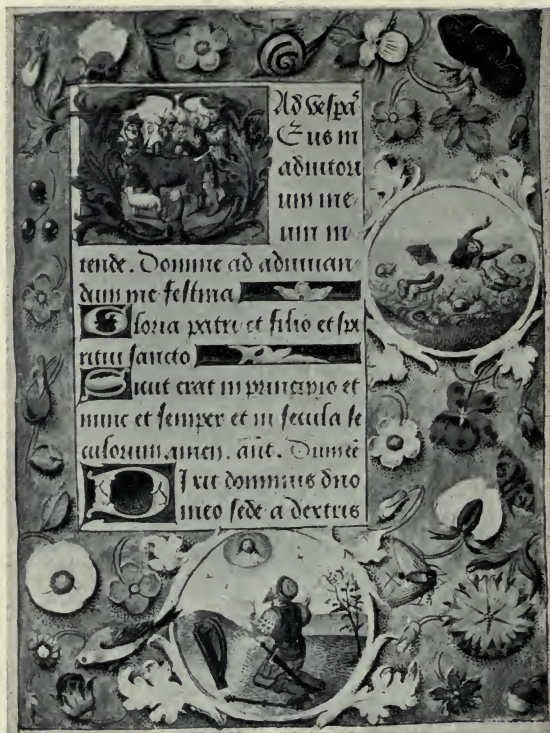 Ad vespaꝝ̃
Eus in
adiutori
um me
um in
tende. Domine ad adiuuan
dum me festina
Gloria patri et filio et spi
ritui sancto
Sicut erat in principio et
nunc et semper et in secula se
culorum. amen. añt. Dum eẽt
Dixit dominus dño
meo sede a dextris